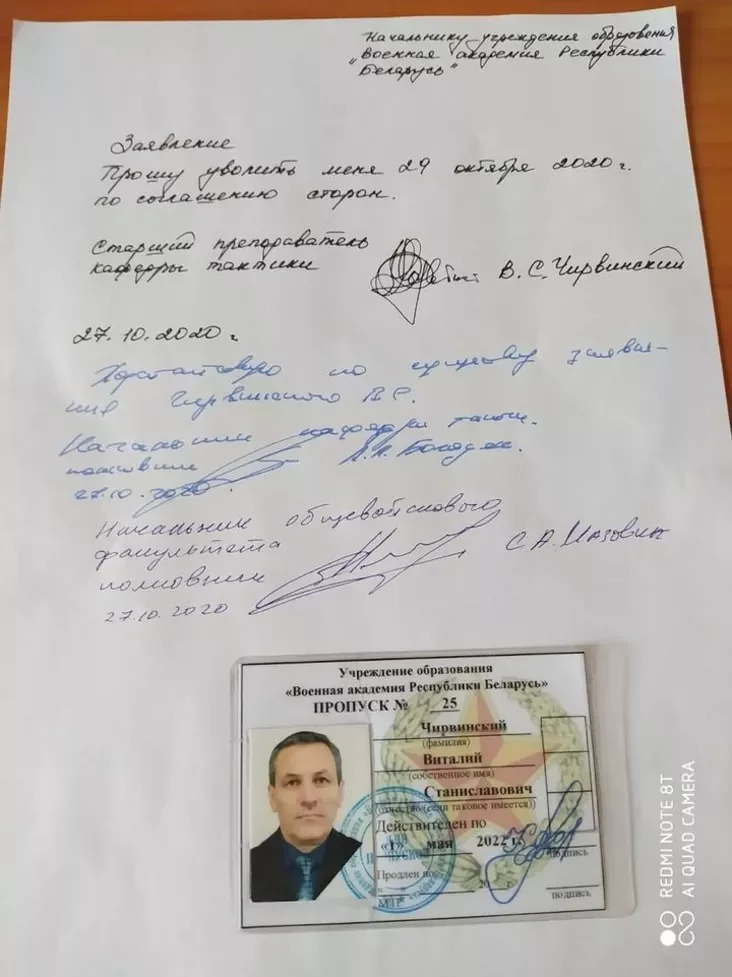 Начальнику учреждения образования
"Военная академия Республики
Беларусь"
Заявление
Прошу уволить меня 29 октября 2020 г.
по соглашению сторон.
Старший преподаватель
кафедры тактики
В.С.Чирвинский
27.10.2020 г.
Ходатайствую по существу заявле-
ния Чирвинского В.С.
Начальник кафедры такти.
полковник
27.10.2020.
Начальник общевойскового
факультета
полковник
С.А.Мазовик
27.10.2020
Учреждение образования
«Военная академия Республики Беларусь»
ПРОПУСК № 25
Чирвинский
(фамилия)
Виталий
(собственное имя)
Станиславович
отчество (если таковое имеется)
Действителен по
«1» мая 2022 г.
подпись
Продлен по
« » 20 г.
подпись
МП
REDMI NOTE 8T
AI QUAD CAMERA